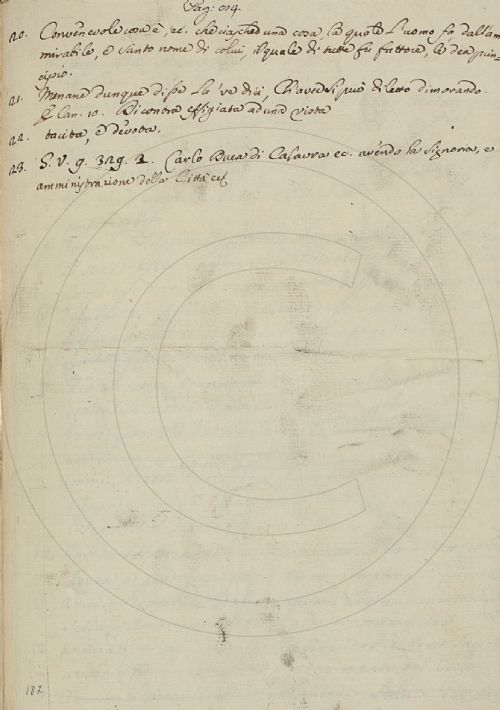 Pag: 104
20. Convenevole cosa è, ec. che ciascheduna cosa, la quale l'uomo fa, dall'am
mirabile, e Santo nome di colui, il quale di tutte fu fattore, le dea prin=
cipio.
21. Menane dunque disse la 've dici, Ch'aver si può diletto dimorando.
Can. 10. Di contra effigiata ad una vista
22. tacita, e devota.
23. G. V. 9. 329. 2. Carlo Duca di Calavra ec. avendo la Signoria, e
amministrazione della Città ec
187